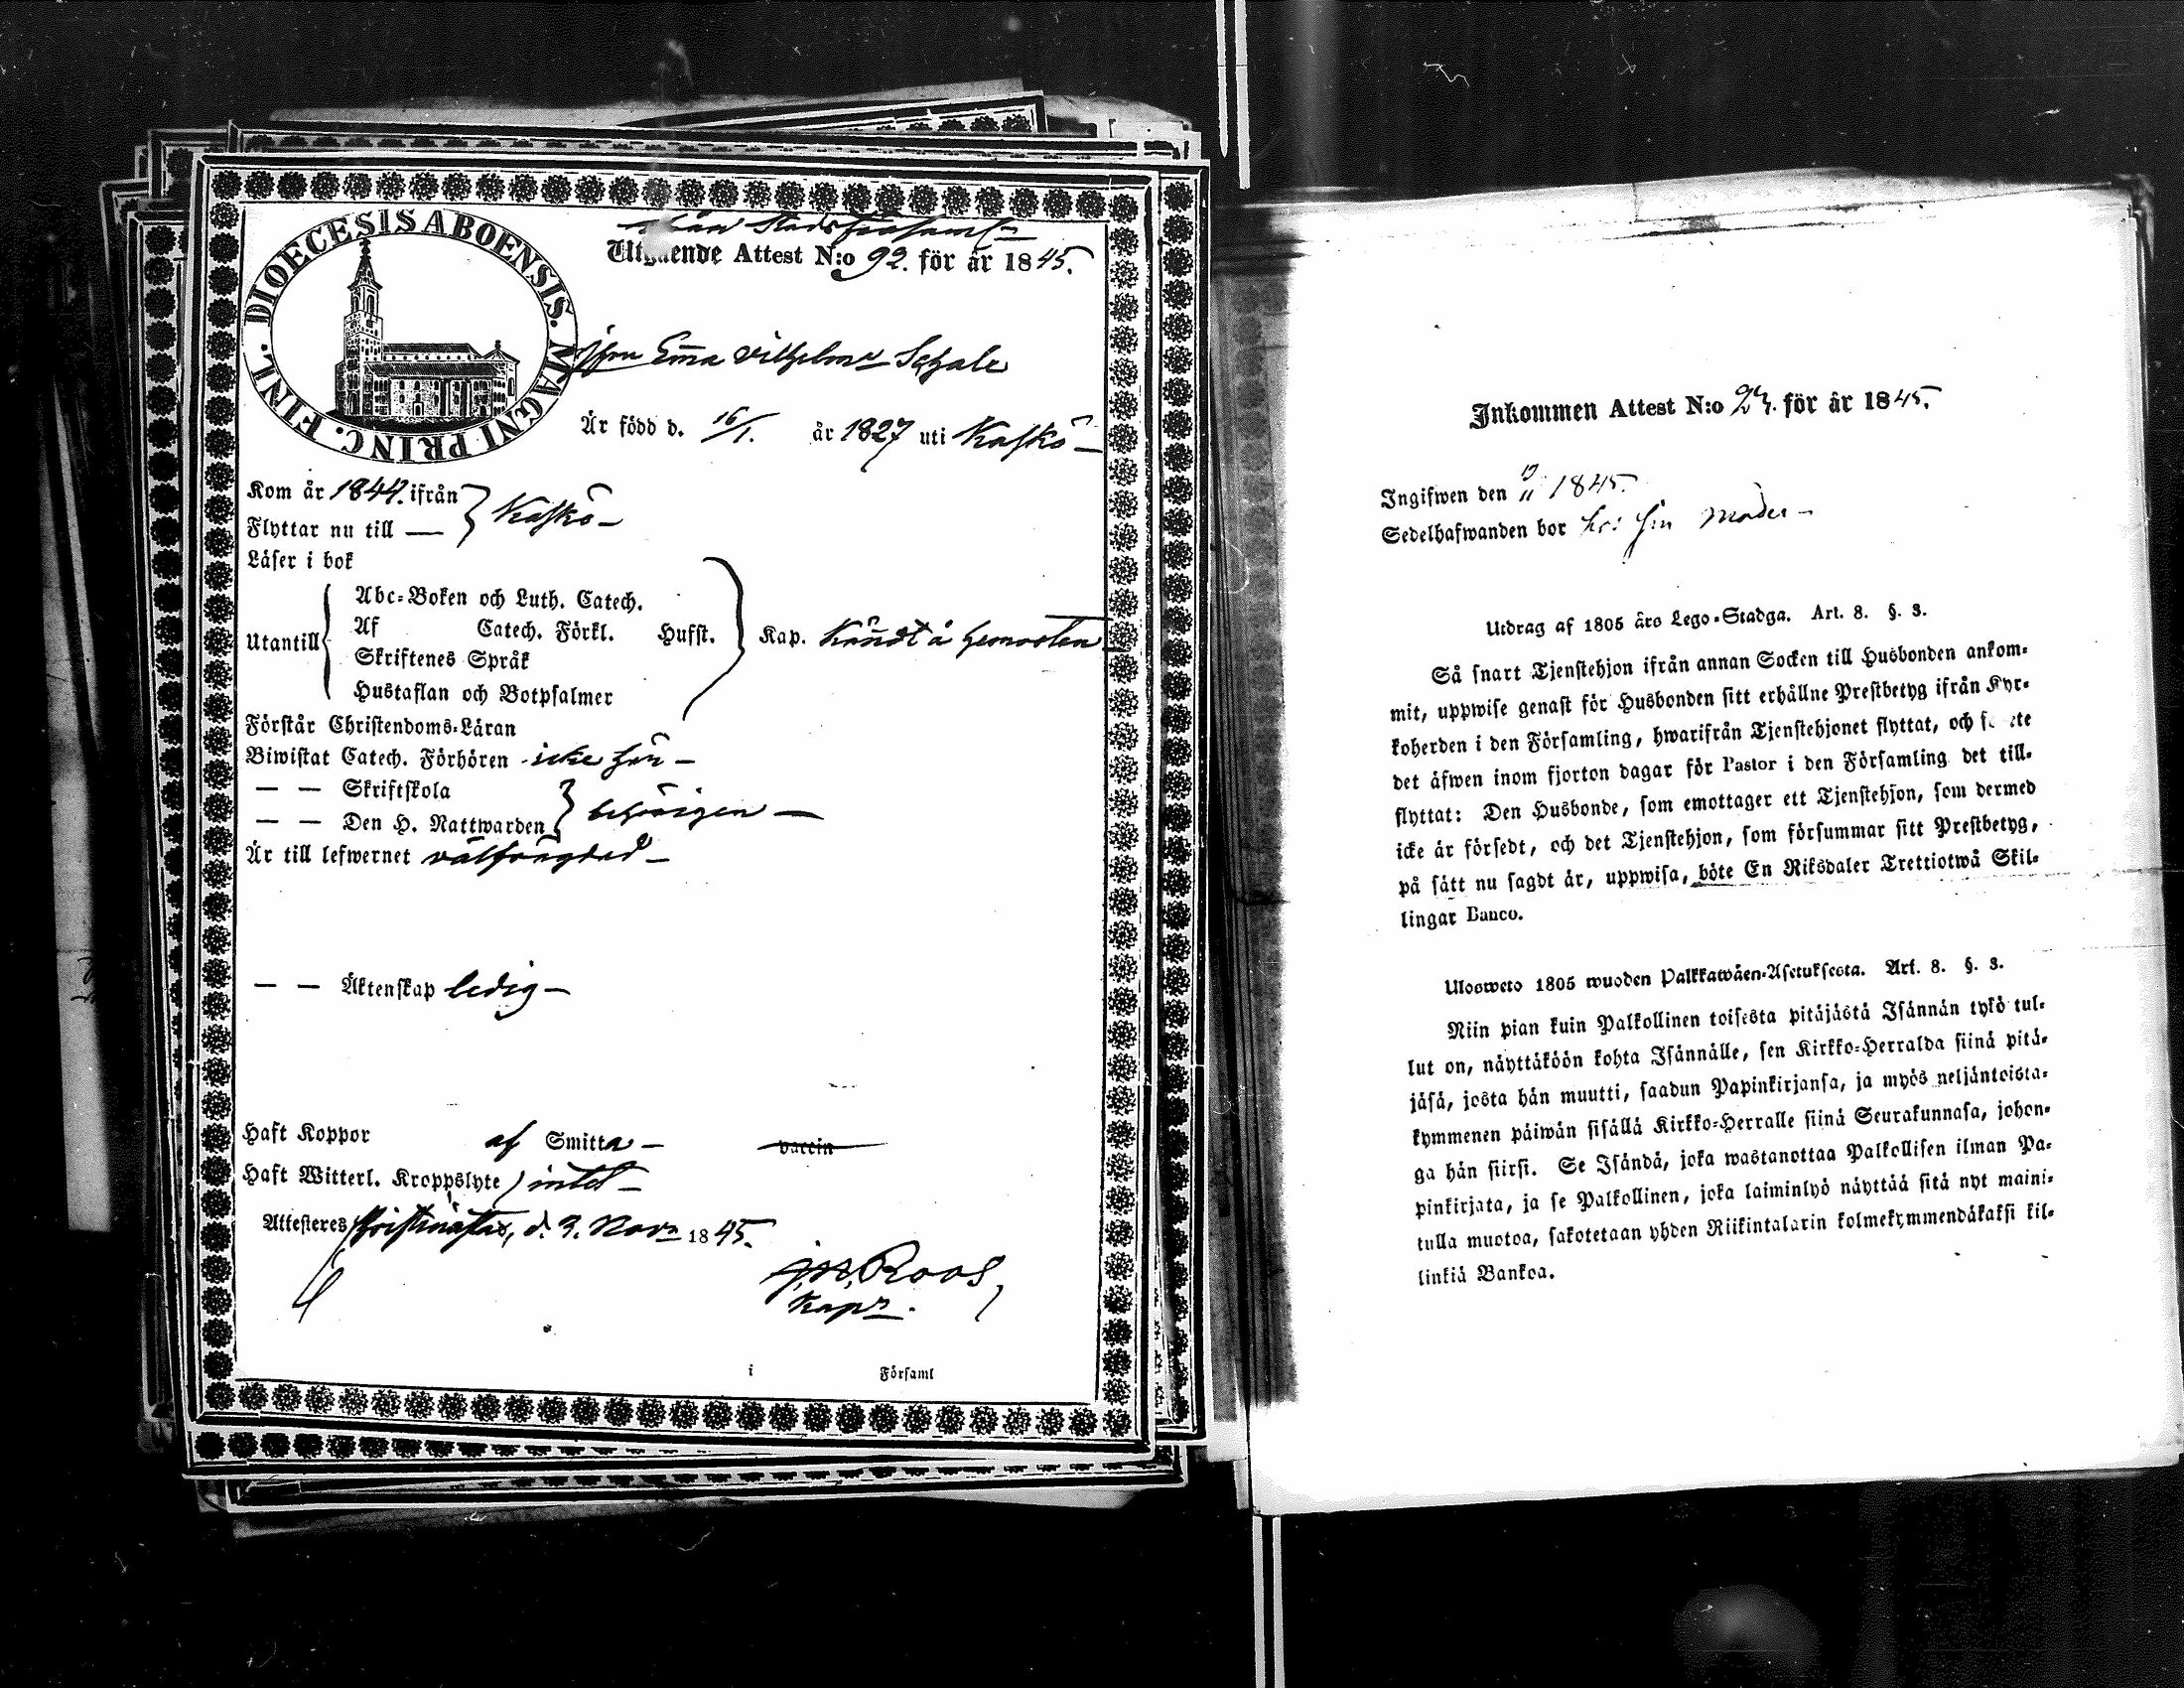 DIOECESIS ABOENSIS. MAGNI PRINC. FINL.
Stadsförsaml
Utgående Attest N:o 92. för år 1845.
Emma Vilhelmina
Är född d. 16/1. år 1827 uti Kaskö
Kom år 1844. ifrån
Kaskö
Flyttar nu till
Läser i bok
Utantill
Abc-Boken och Luth. Catech.
Af Catech. Förkl. Husst.
Kap. Kändt å hemorten
Skriftenes Språk
Hustaflan och Botpsalmer
Förstår Christendoms-Läran
Biwistat Catech. Förhören icke här
— — Skriftskola
behörigen
— — Den H. Nattwarden
Är till lefwernet välfrägdad
— — Äktenskap ledig
Haft Koppor af Smitta vaccin
Haft Witterl. Kroppslyte intet
Attesteras Kristinestad, d. 3. Nov. 1845.
Roos
Kapn.
i Församl
Inkommen Attest N:o 23. för år 1845.
Ingifwen den 1845.
Sedelhafwanden bor hos sin Moder
Utdrag af 1805 års Lego-Stadga. Art. 8. §. 3.
Så snart Tjenstehjon ifrån annan Socken till Husbonden ankom-
mit, uppwise genast för Husbonden sitt erhållne Prestbetyg ifrån Kyr-
koherden i den Församling, hwarifrån Tjenstehjonet flyttat, och
det äfwen inom fjorton dagar för Pastor i den Församling det till-
flyttat: Den Husbonde, som emottager ett Tjenstehjon, som dermed
icke är försedt, och det Tjenstehjon, som försummar sitt Prestbetyg,
på sätt nu sagdt är, uppwisa, böte En Riksdaler Trettiotwå Skil-
lingar Banco.
Ulosweto 1805 wuoden Palkkawäen-Asetuksesta. Art. 8. §. 3.
Niin pian kuin Palkollinen toisesta pitäjästä Isännän tykö tul-
lut on, näyttäköön kohta Isännälle, sen Kirkko-Herralda siinä pitä-
jäsä, josta hän muutti, saadun Papinkirjansa, ja myös neljäntoista-
kymmenen päiwän sisällä Kirkko-Herralle siinä Seurakunnasa, johon-
ga hän siirsi. Se Isändä, joka wastanottaa Palkollisen ilman Pa-
pinkirjata, ja se Palkollinen, joka laiminlyö näyttää sitä nyt maini-
tulla muotoa, sakotetaan yhden Riikintalarin kolmekymmendäkaksi kil-
linkiä Bankoa.